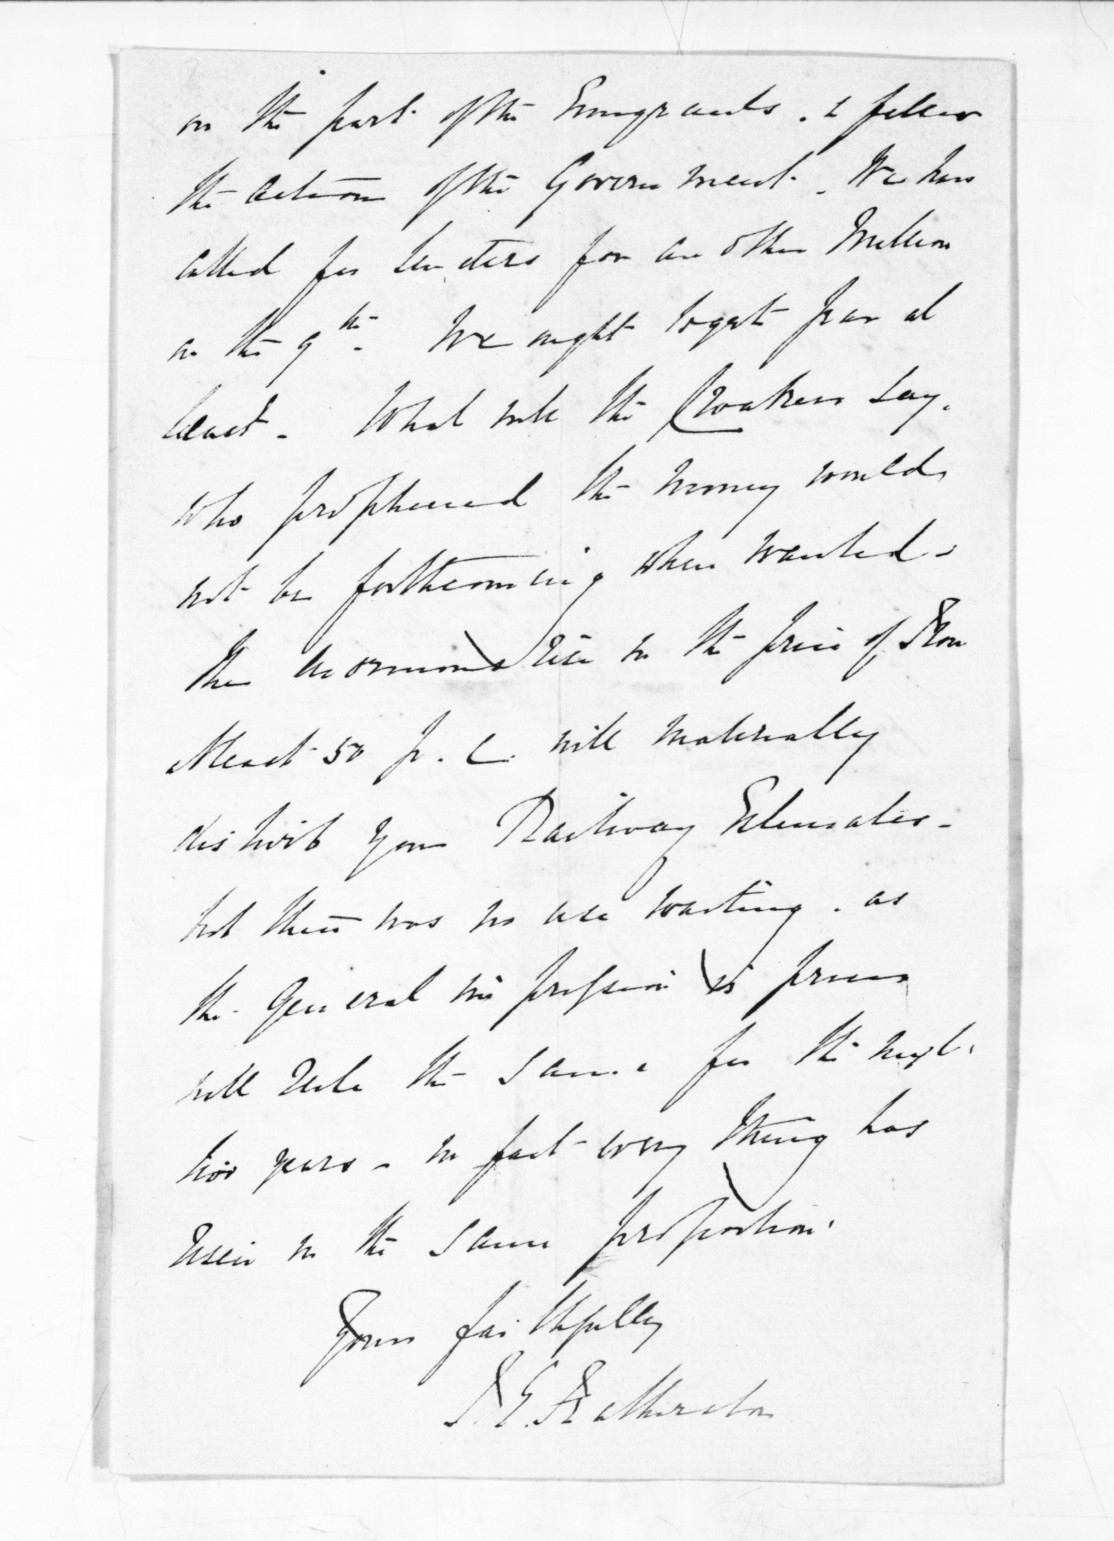 on the part of the Emigrants. & follow
the action of the Government. We have
called for tenders for another Million
on the 9th. We ought to get par at
least. What will the Croakers say,
who prophesied the money would
not be forthcoming when wanted.
The enormous rise in the price of Iron
at least 50 p. c. will materially
disturb your Railway Estimates.
but there was no use waiting. as
the General impression is prices
will rule the same for the next
two years. In fact every thing has
risen in the same proportion.
Yours faithfully
I. E. Featherston